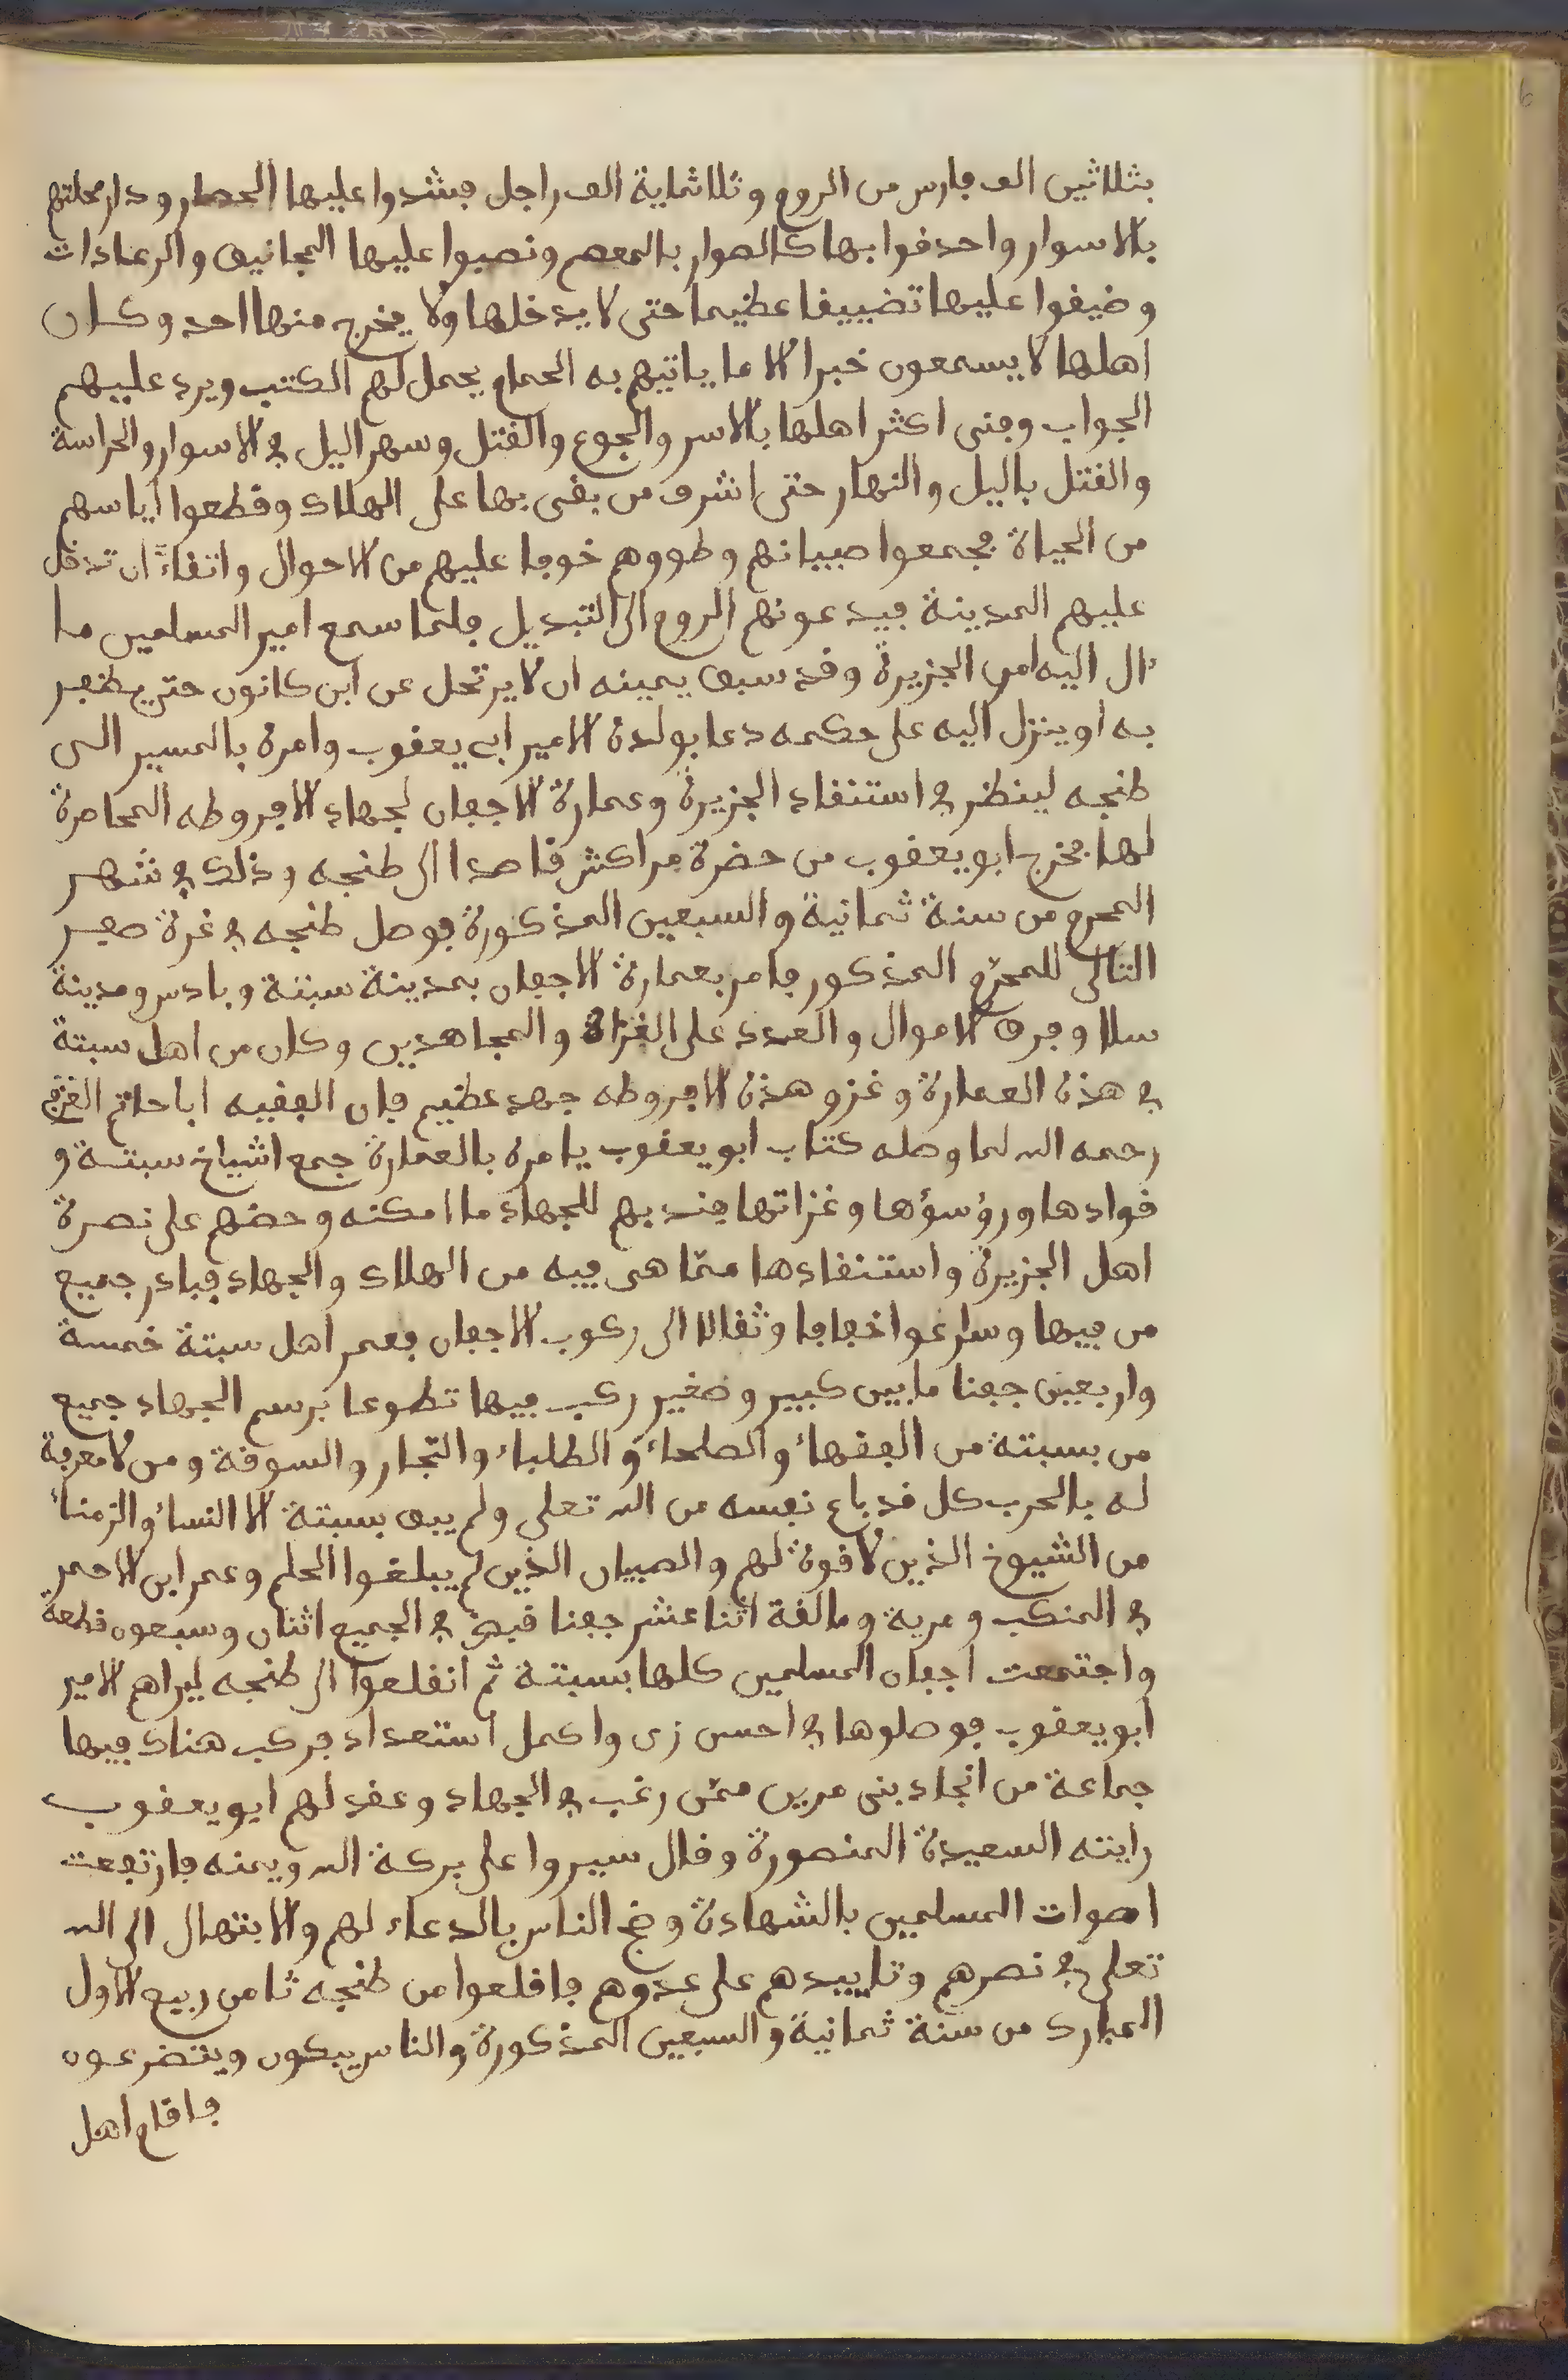 بثلاثين الف فارس من الروم وثلاثماية الف راجل فشدوا عليها الحصار ودار محلتهم
بالاسوار واحدقوا بها كالسوار بالمعصم ونصبوا عليها المجانيق والرعادات
وضيقوا عليها تضييقا عظيما حتى لا يدخلها ولا يخرج منها احد وكان
اهلها لا يسمعون خبرا الا ما ياتيهم به الحمام يحمل لهم الكتب ويرد عليهم
الجواب وفنى اكثر اهلها بالاسر والجوع والقتل وسهر اليل في الاسوار والحراسة
والقتل باليل والنهار حتى اشرف من بقى بها على الهلاك وقطعوا اياسهم
من الحياة فجمعوا صبيانهم وطووهم خوفا عليهم من الاحوال واتقاءً ان تدخل
عليهم المدينة فيدعونهم الروم الى التبديل فلما سمع امير المسلمين ما
ءال اليه امر الجزيرة وقد سبق يمينه ان لا يرتحل عن ابن كانون حتى يظفر
به او ينزل اليه على حكمه دعا بولده الامير ابى يعقوب وامره بالمسير الى
طنجه لينظر في استنقاد الجزيرة وعمارة الاجفان لجهاد الافروطه المحاصرة
لها فخرج ابو يعقوب من حضرة مراكش قاصدا الى طنجه وذلك في شهر
المحرم من سنة ثمانية والسبعين المذكورة فوصل طنجه في غرة صفر
التالى للمحرّم المذكور فامر بعمارة الاجفان بمدينة سبتة وبادس ومدينة
سلا وفرق الاموال والعدد على الغزاة والمجاهدين وكان من اهل سبتة
في هذه العمارة وغزو هذه الافروطه جهد عظيم فان الفقيه ابا حاتم العزفى
رحمه الله لما وصله كتاب ابو يعقوب يامره بالعمارة جمع اشياخ سبتة و
قوادها ورؤسؤها وغزاتها فندبهم للجهاد ما امكنه وحضهم على نصرة
اهل الجزيرة واستنقادها ممّا هى فيه من الهلاك والجهاد فبادر جميع
من فيها وسارعوا خفافا وثقالا الى ركوب الاجفان فعمر اهل سبتة خمسة
واربعين جفنا ما بين كبير وصغير ركب فيها تطوعا برسم الجهاد جميع
من بسبتة من الفقهاء والصلحاء والطلباء والتّجار والسوقة ومن لا معرفة
له بالحرب كل قد باع نفسه من الله تعلى ولم يبق بسبتة الا النساء والزمناء
من الشيوخ الذين لا قوة لهم والصبيان الذين لم يبلغوا الحلم وعمر ابن الاحمر
في المنكب ومرية ومالقة اثنا عشر جفنا في الجميع اثنان وسبعون قطعة
واجتمعت اجفان المسلمين كلها بسبتة ثم انقلعوا الى طنجه ليراهم الامير
ابو يعقوب فوصلوها في احسن زى واكمل استعداد فركب هناك فيها
جماعة من انجاد بنى مرين ممّن رغب في الجهاد وعقد لهم ابو يعقوب
رايته السعيدة المنصورة وقال سيروا على بركة الله ويمنه فارتفعت
اصوات المسلمين بالشهادة وضج الناس بالدعاء لهم والابتهال الى الله
تعلى في نصرهم وتاييدهم على عدوهم فاقلعوا من طنجه ثامن ربيع الاول
المبارك من سنة ثمانية والسبعين المذكورة والناس يبكون ويتضرعون
فاقام اهل